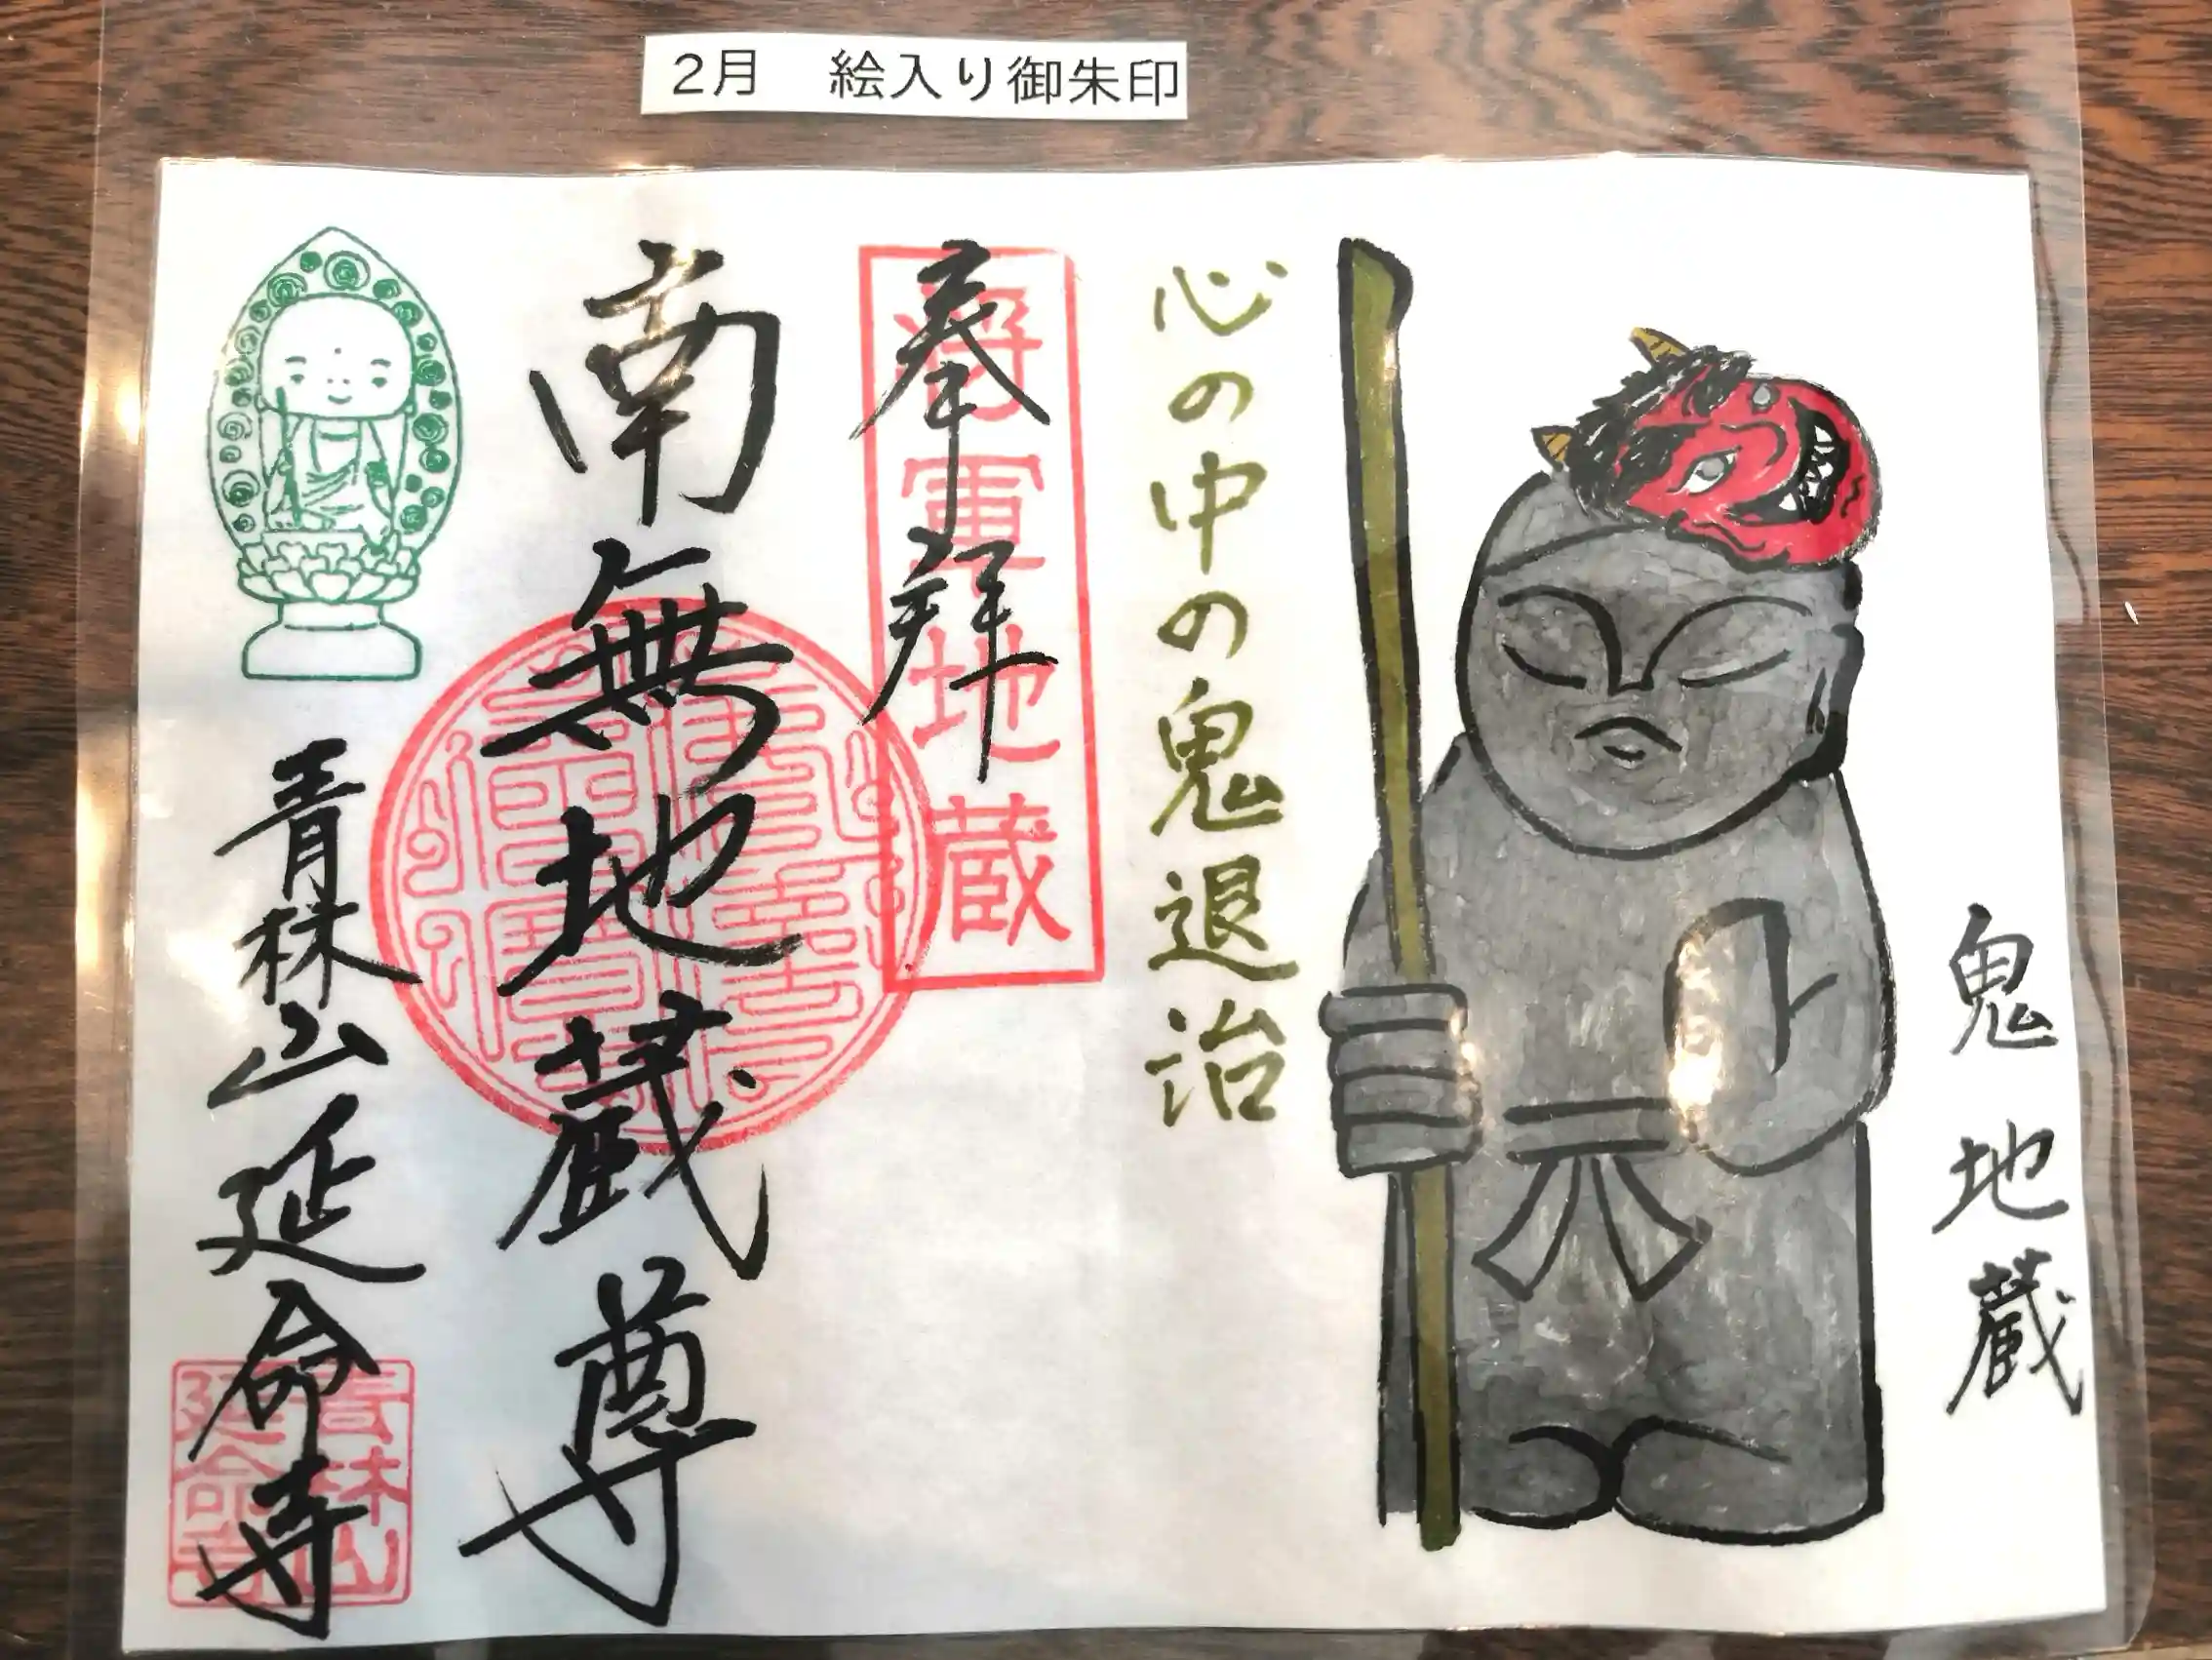 2月　絵入り御朱印
鬼地蔵
心の中の鬼退治
奉拝
将軍地蔵
南無地蔵尊
青林山延命寺
青林山
延命寺